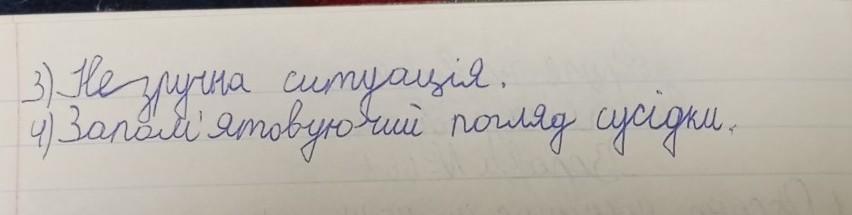 3) Незручна ситуація.
4) Запам'ятовуючий погляд сусідки.